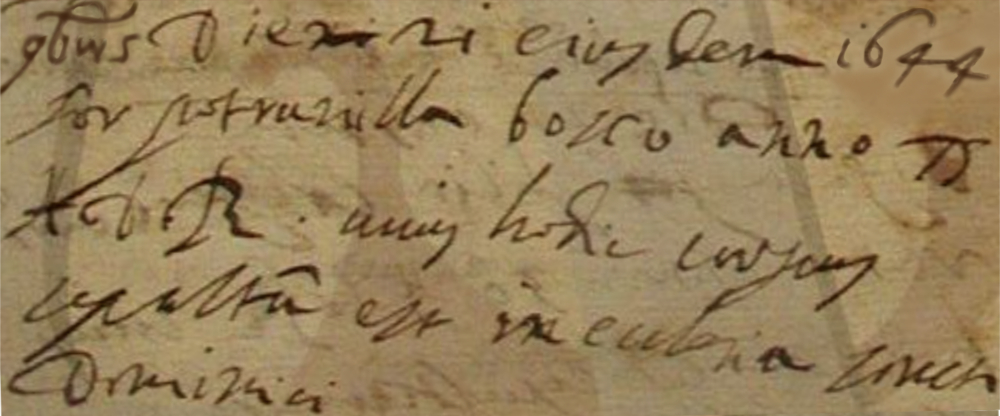 9bris Die xi ni eiusdem 1644
Sor petrunilla bosco anno D
cuius hodie corpus
sepultū est in eccl[esi]a
Dominici